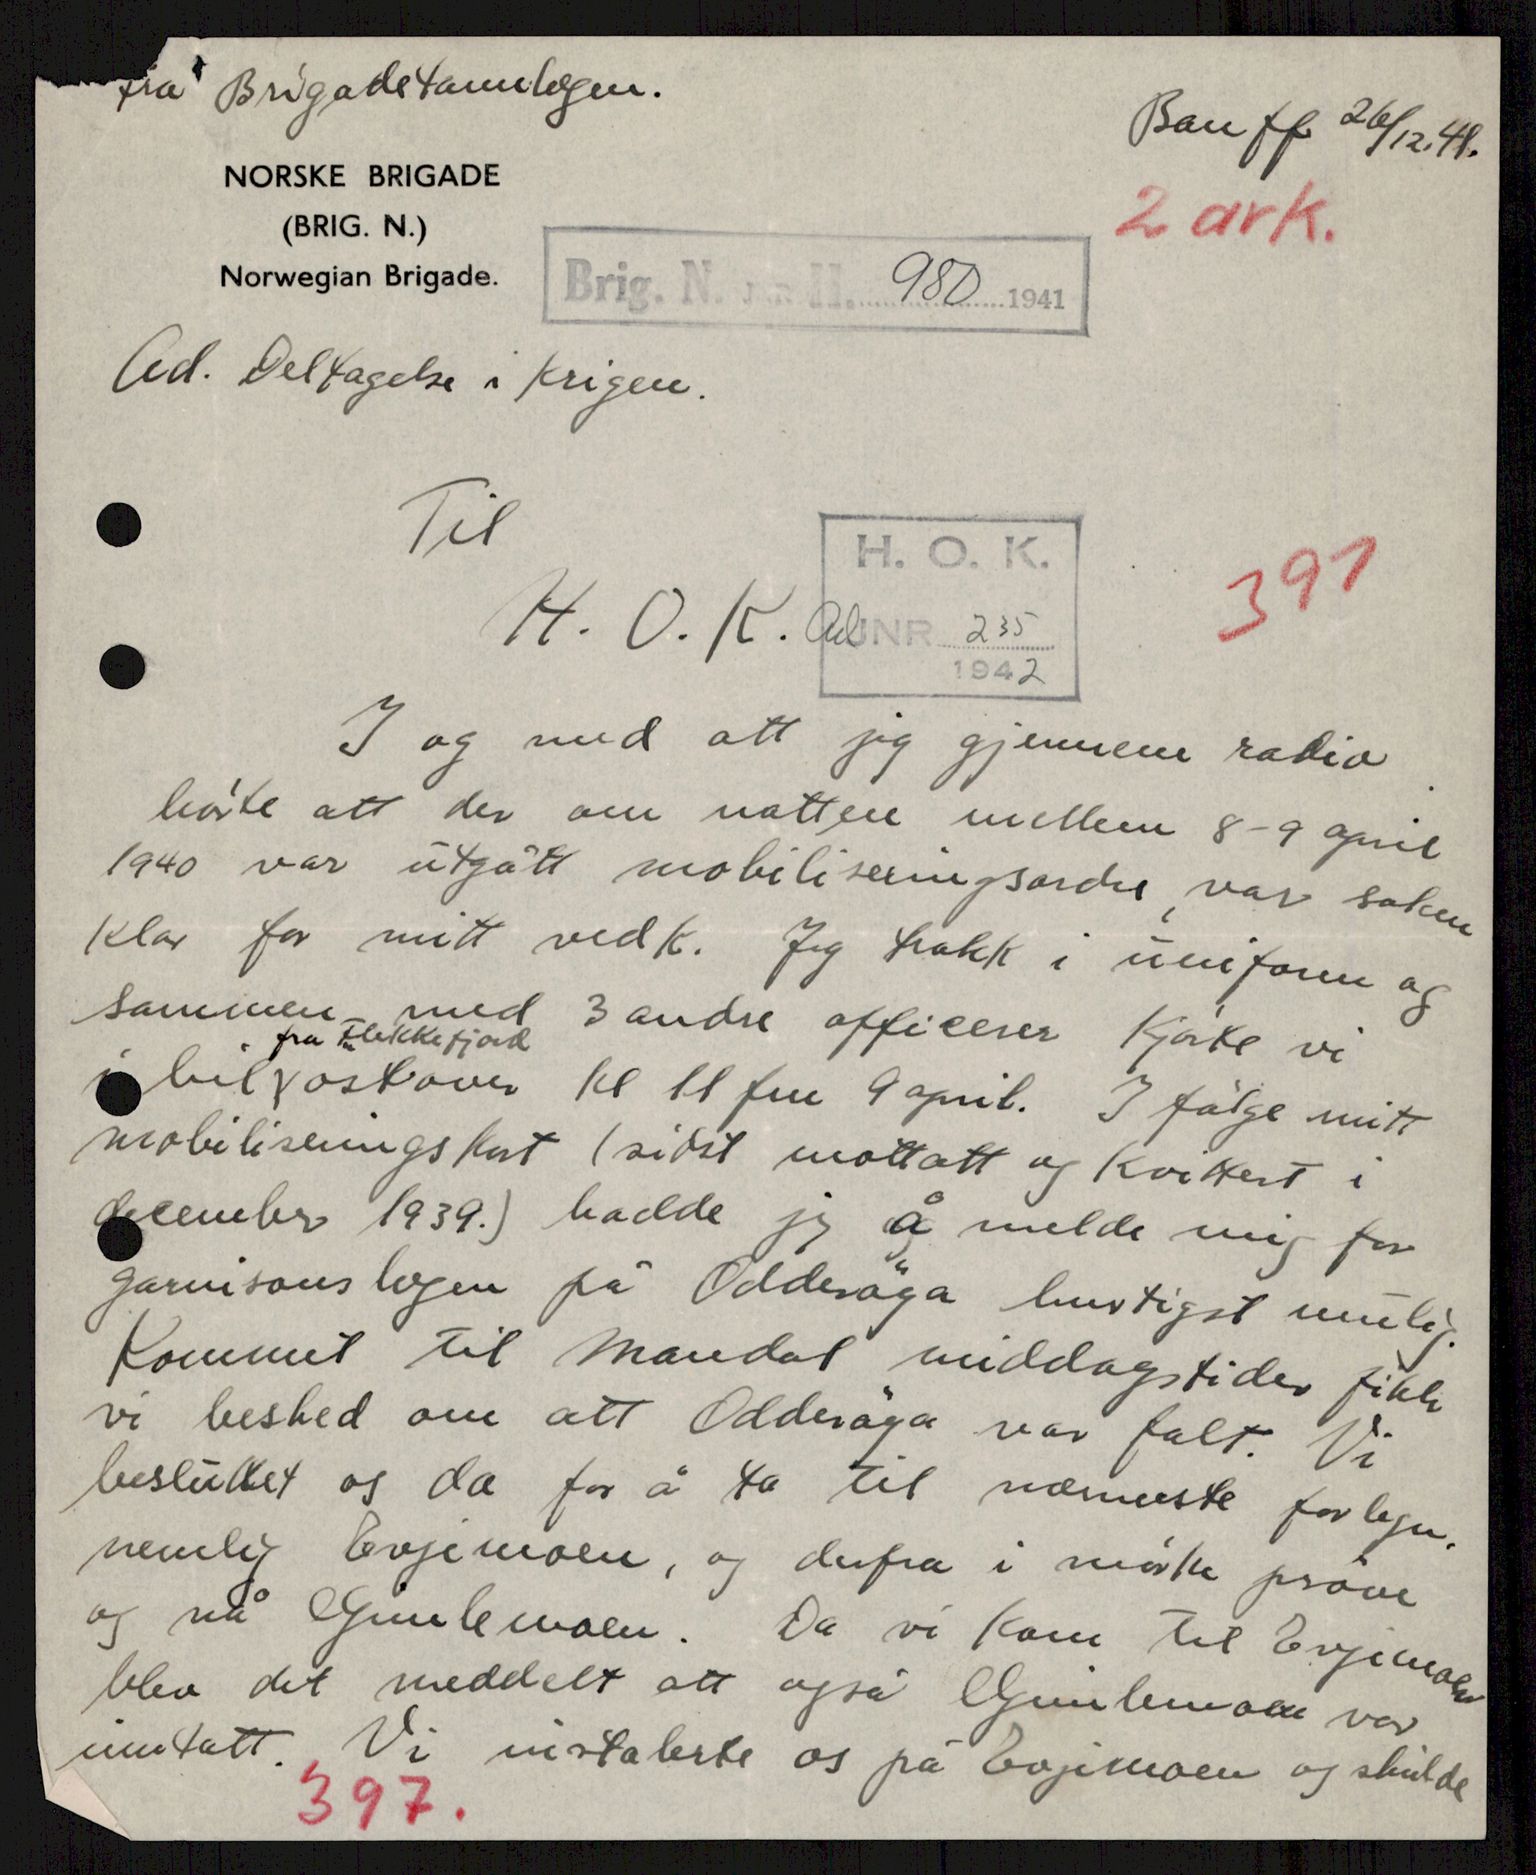 fra Brigadetannlegen.
Banff 26/12.41.
NORSKE BRIGADE
(BRIG. N.)
Norwegian Brigade.
2 ark.
Brig. N. J.nr. II. 980 1941
Ad. Deltagelse i krigen.
Til
H. O. K.
H. O. K.
Ad JNR 235
1942
397
I og med att jeg gjennem radio
hörte att der om natten mellem 8-9 april
1940 var utgått mobiliseringsordre, var saken
klar for mitt vedk. Jeg trakk i uniform og
sammen med 3 andre officerer kjörte vi
fra Flekkefjord
i bil östover kl 11 fm 9 april. I fölge mitt
mobiliseringskort (sidst mottatt og kvittert i
december 1939.) hadde jeg å melde mig for
garnisonslegen på Odderöya hurtigst mulig.
Kommet til Mandal middagstider fikk
vi besked om att Odderöya var falt. Vi
besluttet os da for å ta til nærmeste forlegn.
nemlig Evjemoen, og derfra i mörke pröve
og nå Gimlemoen. Da vi kom til Evjemoen
blev det meddelt att også Gimlemoen var
inntatt. Vi instalerte os på Evjemoen og skulde
397.